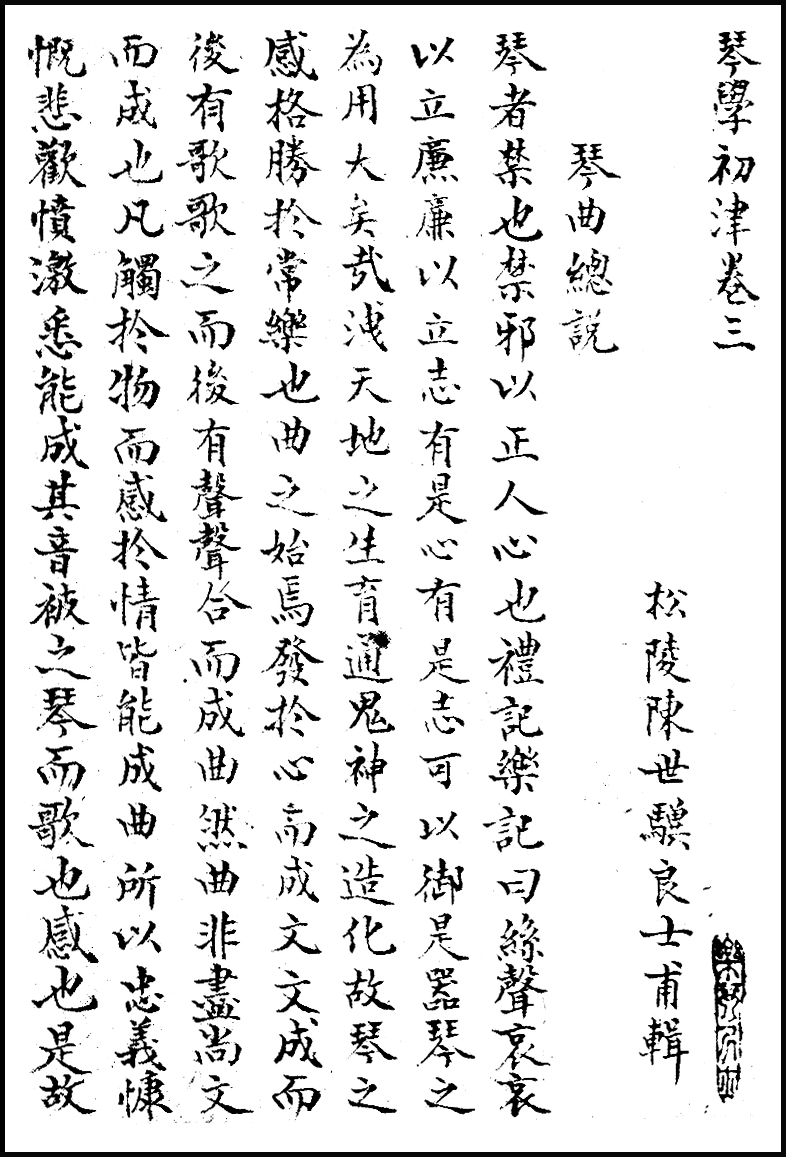 琴學初津卷三
松陵陳世驥良士甫輯
琴曲總説
琴者禁也禁邪以正人心也禮記樂記曰絲聲哀哀
以立廉廉以立志有是心有是志可以御是器琴之
為用大矣哉洩天地之生育通鬼神之造化故琴之
感格勝扵常樂也曲之始焉發扵心而成文文成而
後有歌歌之而後有聲聲合而成曲然曲非盡尚文
而成也凡觸扵物而感扵情皆能成曲所以忠義慷
慨悲歡憤激悉能成其音被之琴而歌也感也是故